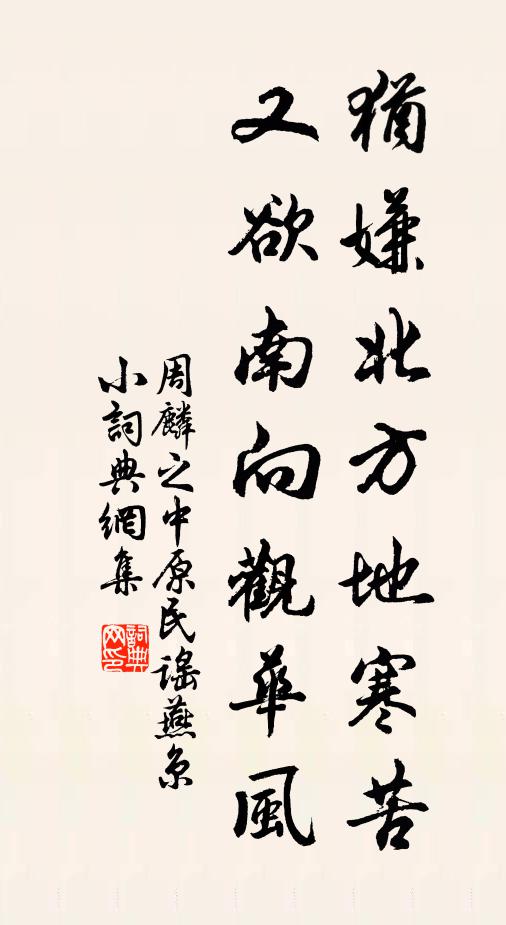 猶嫌北方地寒苦
又欲南向觀華風
周麟之中原民謠燕京
小詞典網集
詞典網印